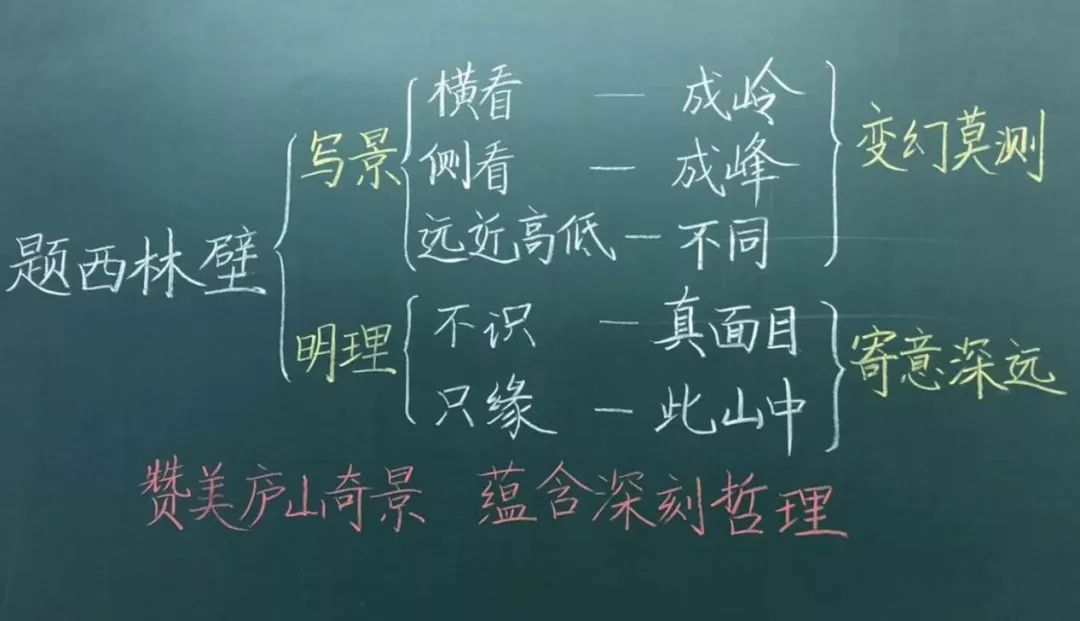 题西林壁
写景
横看 — 成岭
侧看 — 成峰
远近高低 — 不同
变幻莫测
明理
不识 — 真面目
只缘 — 此山中
寄意深远
赞美庐山奇景 蕴含深刻哲理